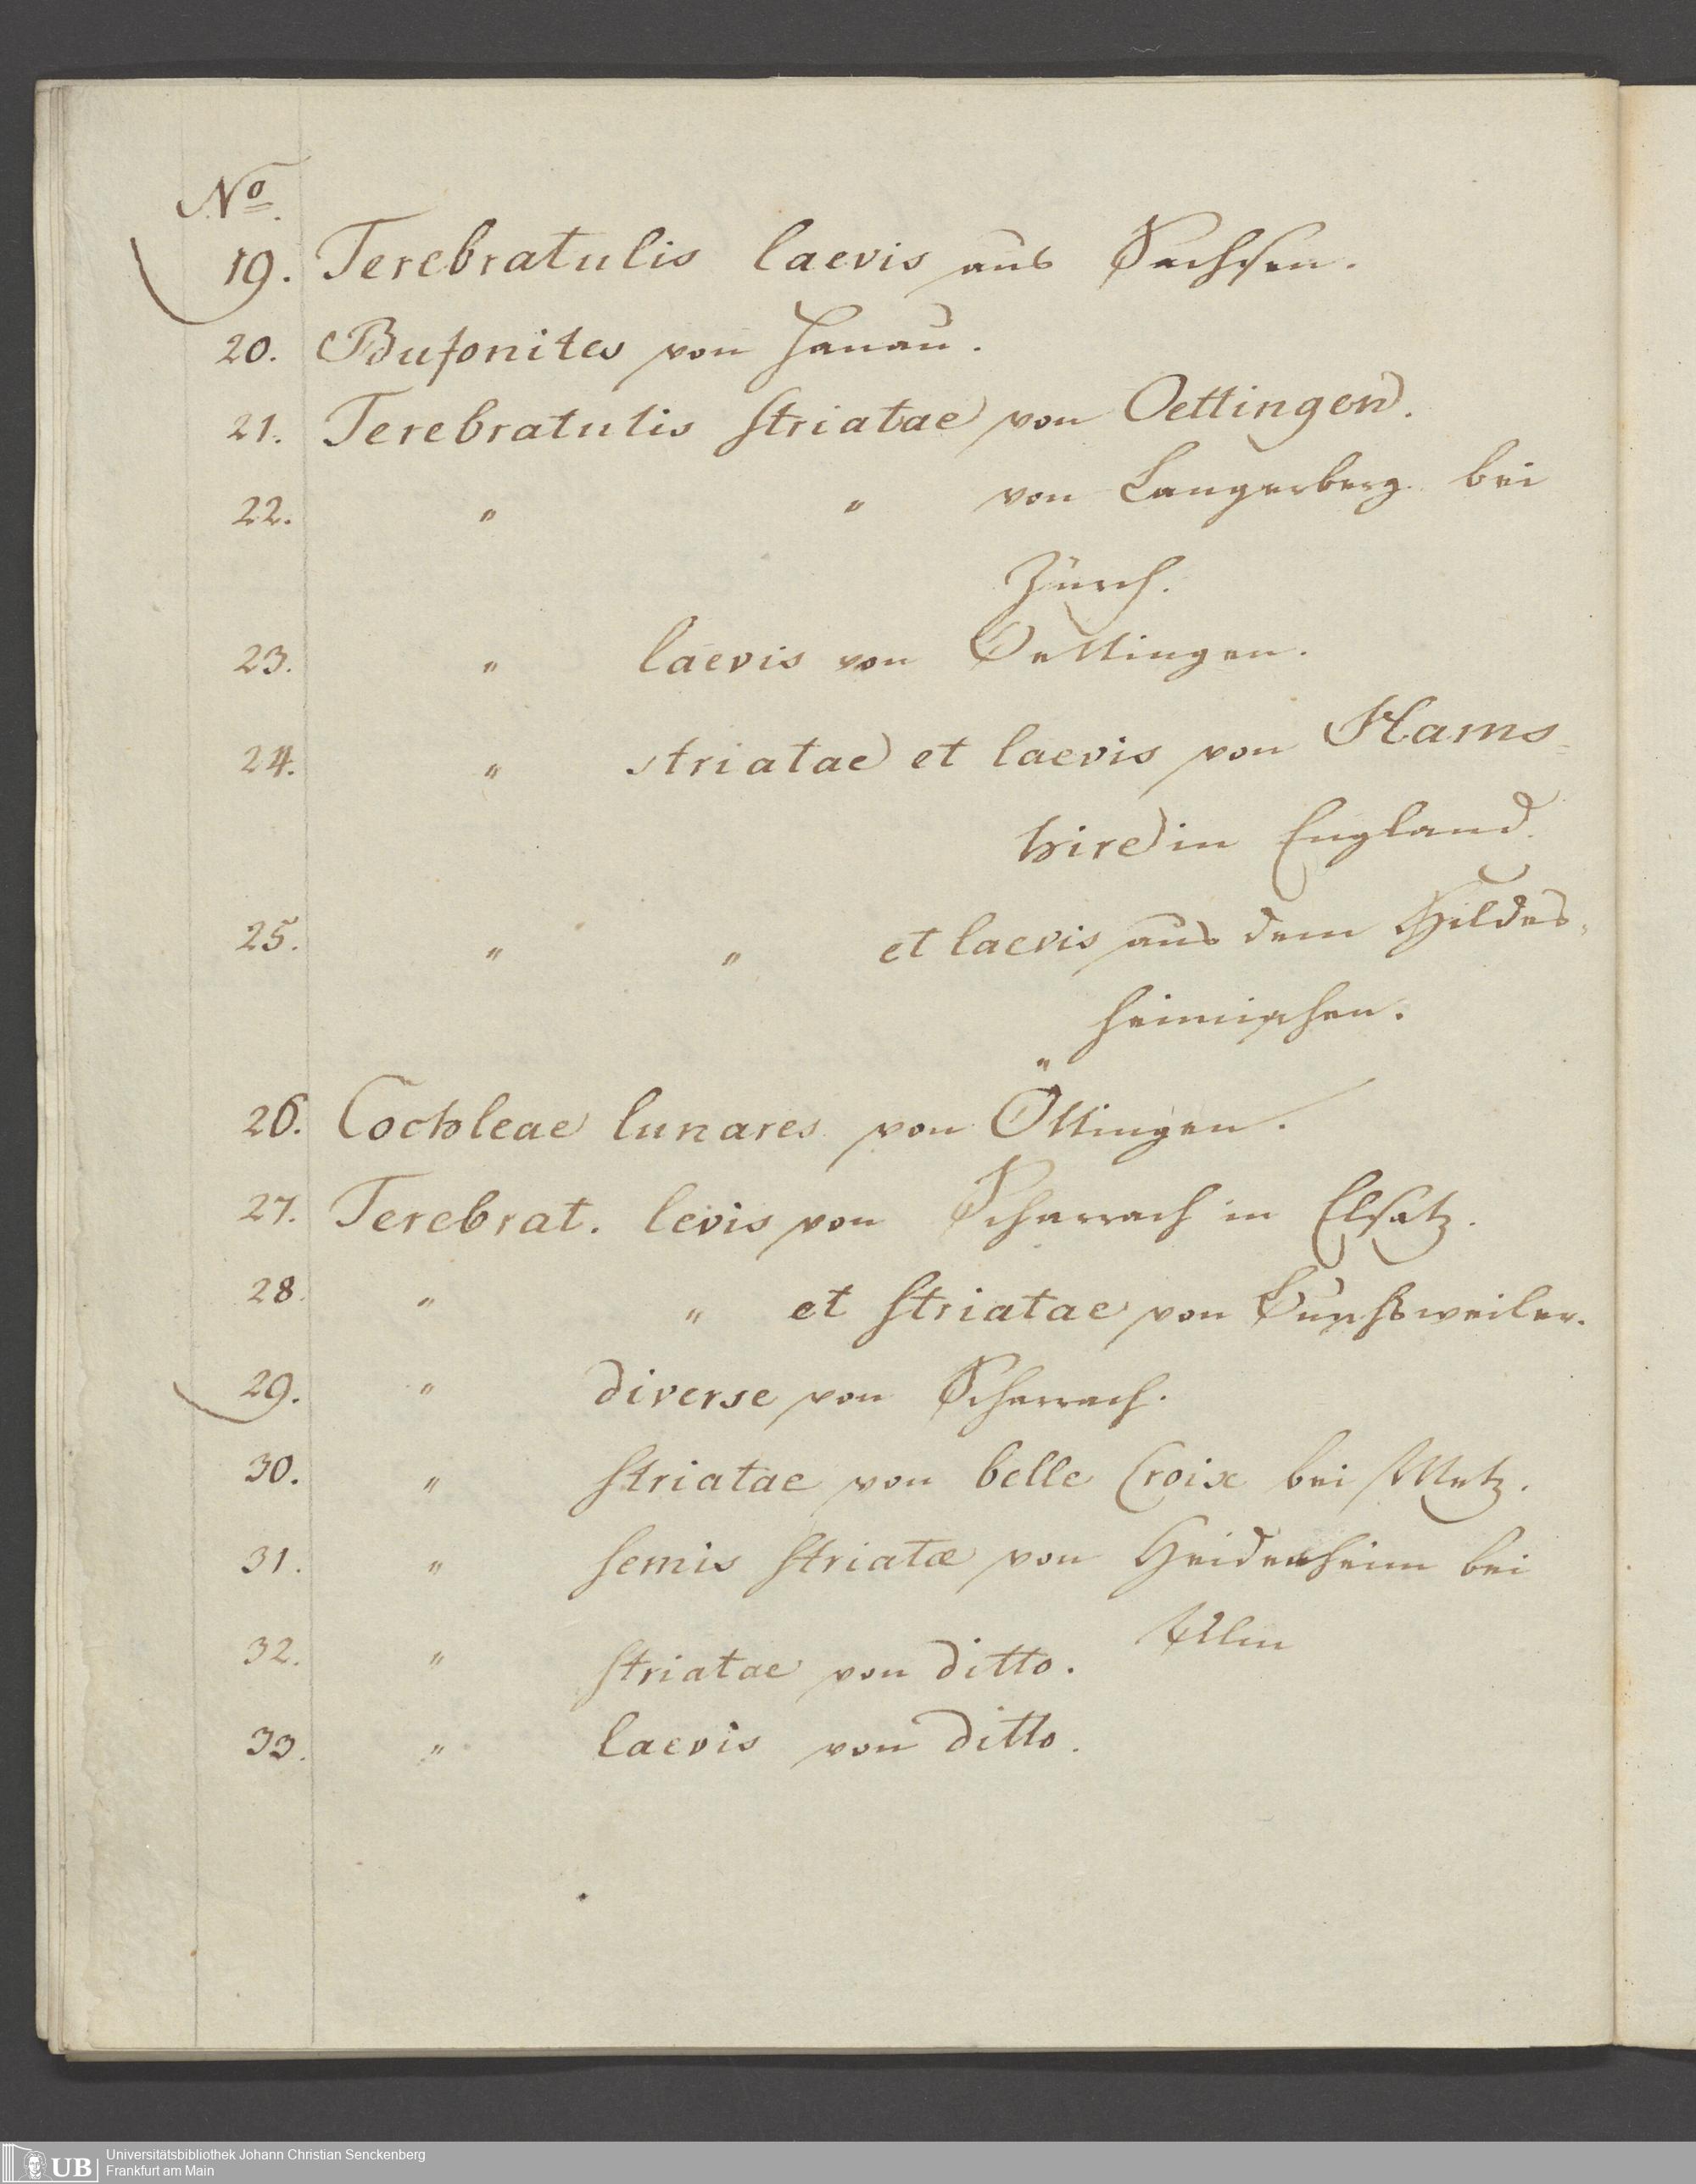 No.
19. Terebratulis laevis aus Sachsen.
20. Bufonites von Hanau.
21. Terebratulis striatae von Oettingen.
22. " " von Langerberg bei
Zürch.
23. " laevis von Oettingen.
24. " striatae et laevis von Hams-
hire in England.
25. " " et laevis aus dem Hildes-
heimischen.
26. Cochleae lunares von Öttingen.
27. Terebrat. levis von Scharrach in Elsatz.
28. " " et striatae von Buchsweiler.
29. " diverse von Scharrach.
30. " striatae von belle Croix bei Metz.
31. " semis striatæ von Heidenheim bei
Ulm
32. " striatae von ditto.
33. " laevis von ditto.
UB Universitätsbibliothek Johann Christian Senckenberg
Frankfurt am Main